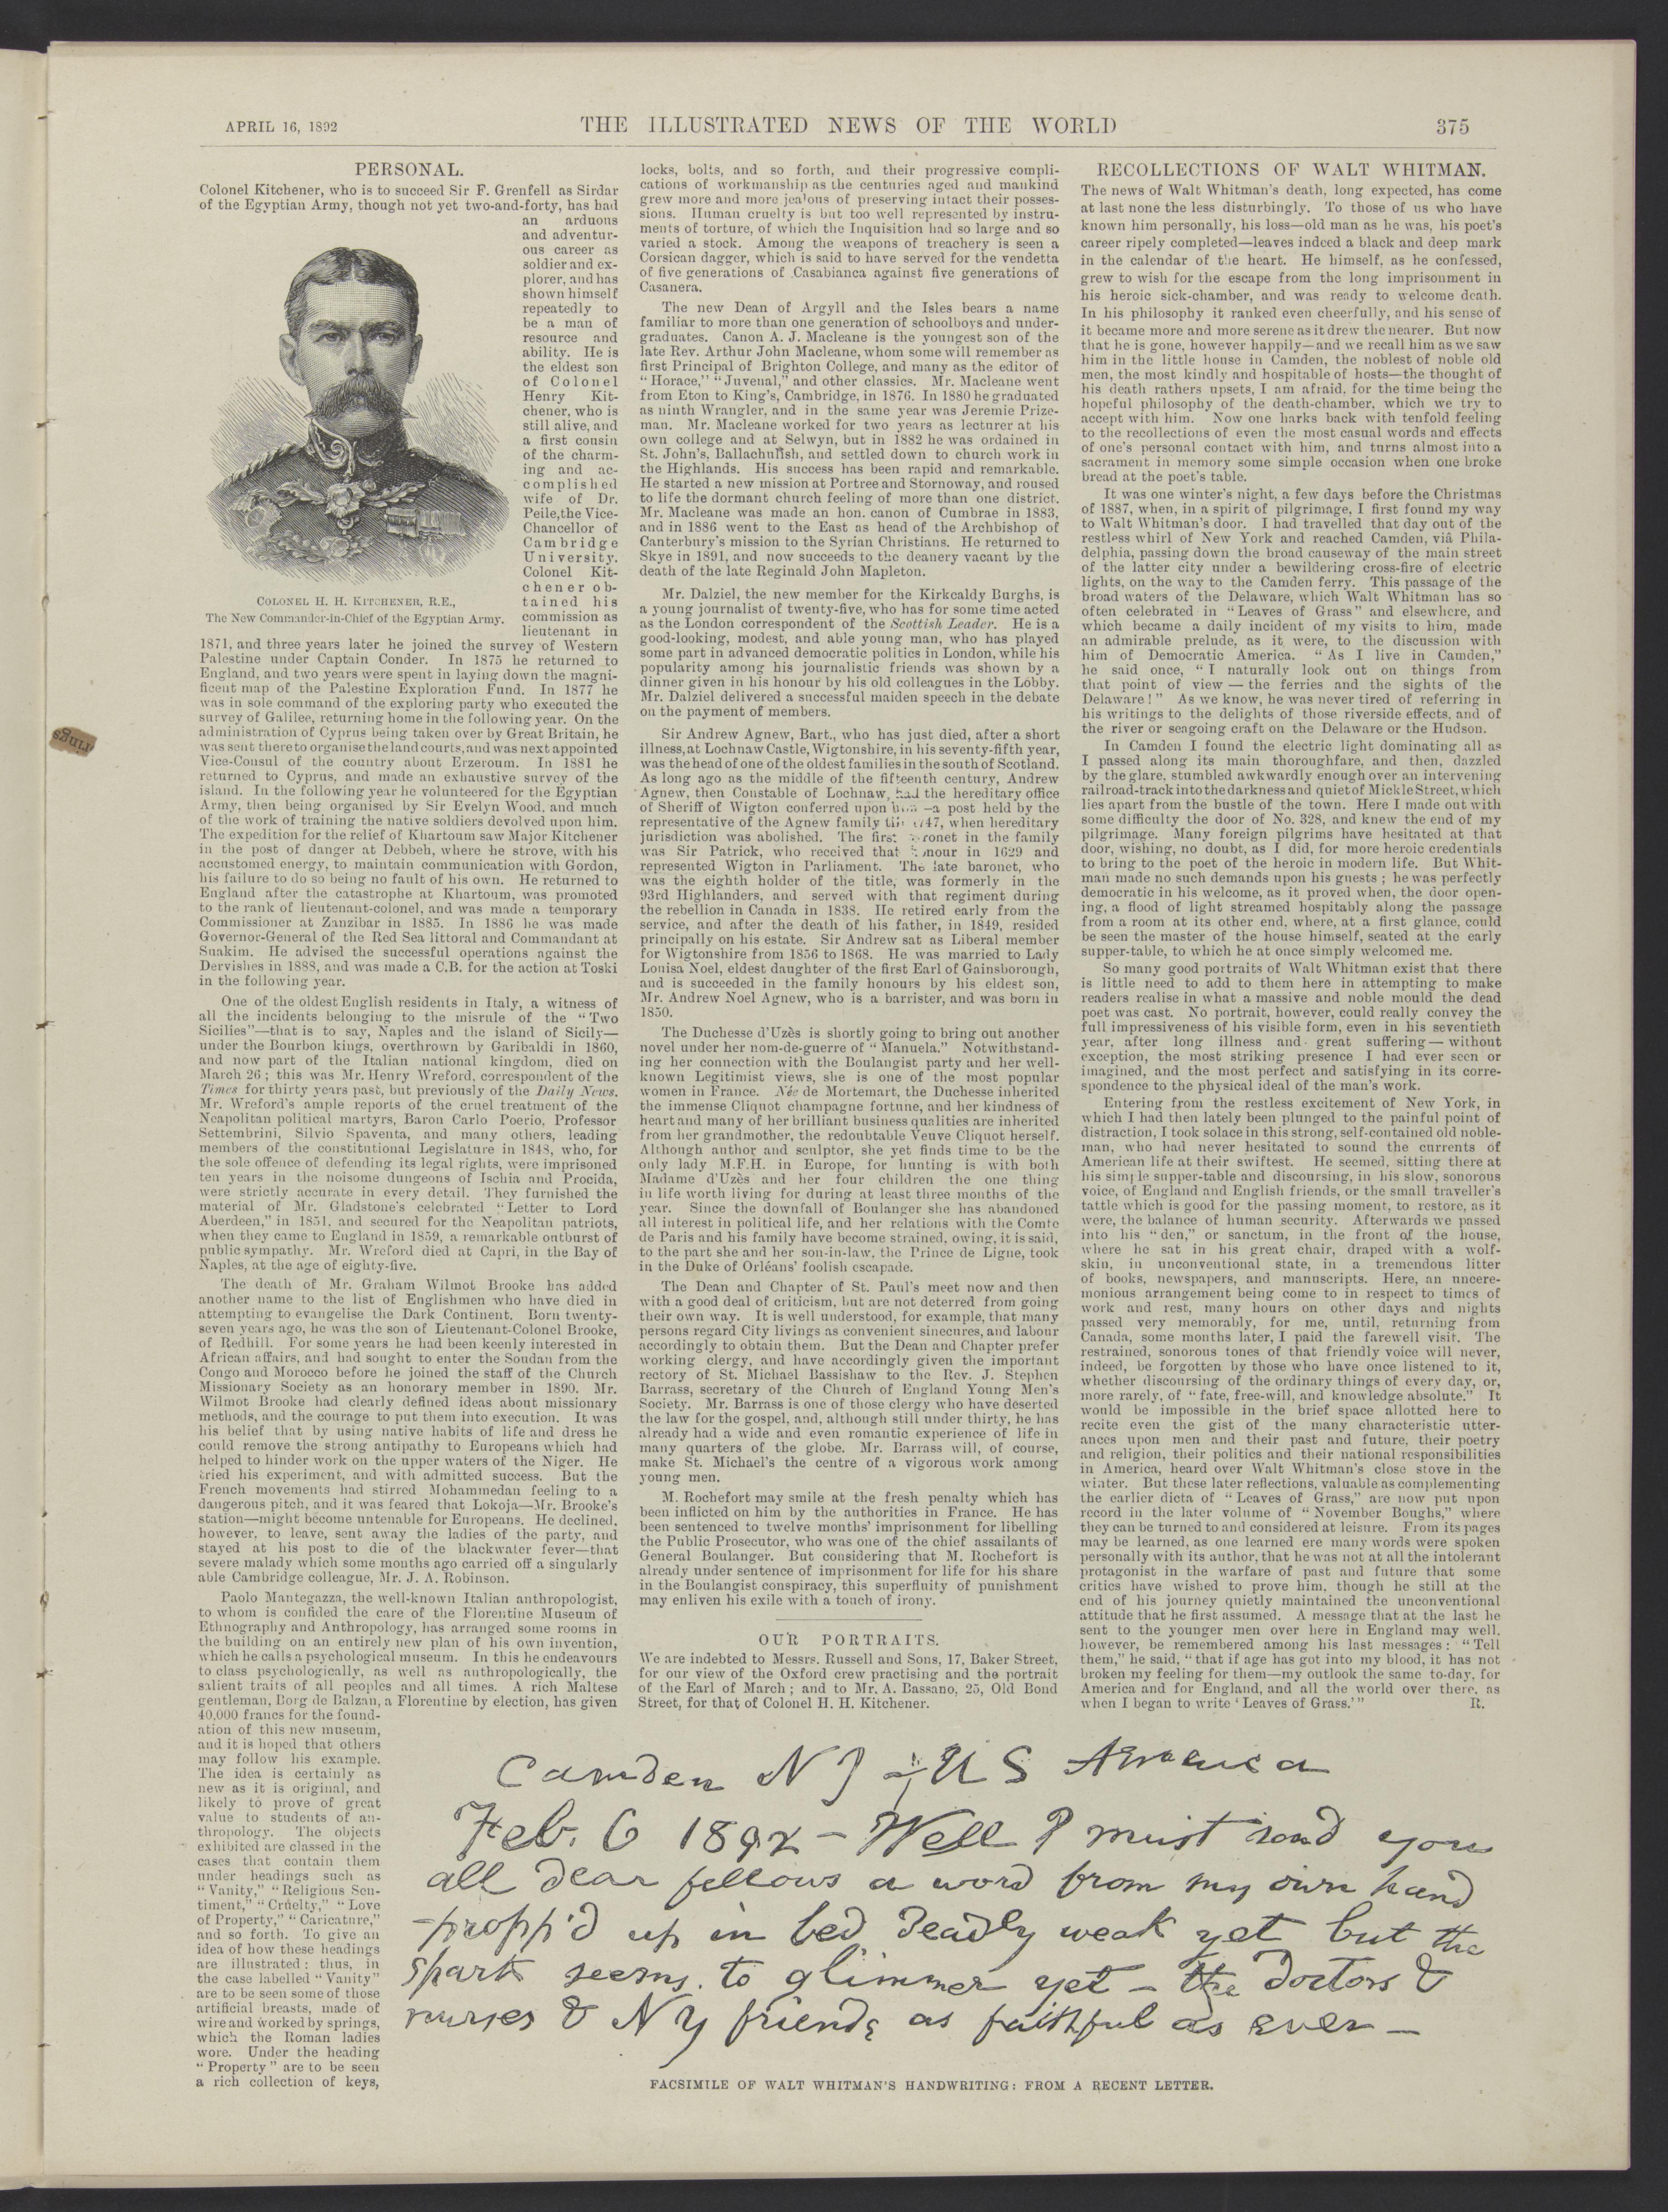 APRIL 16, 1892
THE ILLUSTRATED NEWS OF THE WORLD
375
PERSONAL.
Colonel Kitchener, who is to succeed Sir F. Grenfell as Sirdar
of the Egyptian Army, though not yet two-and-forty, has had
an arduous
and adventur-
ous career as
soldier and ex-
plorer, and has
shown himself
repeatedly to
be a man of
resource and
ability. He is
the eldest son
of Colonel
Henry Kit-
chener, who is
still alive, and
a first cousin
of the charm-
ing and ac-
complished
wife of Dr.
Peile, the Vice-
Chancellor of
Cambridge
University.
Colonel Kit-
chener ob-
tained his
commission as
lieutenant in
COLONEL H. H. KITCHENER, R.E.,
The New Commander-in-Chief of the Egyptian Army.
1871, and three years later he joined the survey of Western
Palestine under Captain Conder. In 1875 he returned to
England, and two years were spent in laying down the magni-
ficent map of the Palestine Exploration Fund. In 1877 he
was in sole command of the exploring party who executed the
survey of Galilee, returning home in the following year. On the
administration of Cyprus being taken over by Great Britain, he
was sent there to organise the land courts, and was next appointed
Vice-Consul of the country about Erzeroum. In 1881 he
returned to Cyprus, and made an exhaustive survey of the
island. In the following year he volunteered for the Egyptian
Army, then being organised by Sir Evelyn Wood, and much
of the work of training the native soldiers devolved upon him.
The expedition for the relief of Khartoum saw Major Kitchener
in the post of danger at Debbeh, where he strove, with his
accustomed energy, to maintain communication with Gordon,
his failure to do so being no fault of his own. He returned to
England after the catastrophe at Khartoum, was promoted
to the rank of lieutenant-colonel, and was made a temporary
Commissioner at Zanzibar in 1885. In 1886 he was made
Governor-General of the Red Sea littoral and Commandant at
Suakim. He advised the successful operations against the
Dervishes in 1888, and was made a C.B. for the action at Toski
in the following year.
One of the oldest English residents in Italy, a witness of
all the incidents belonging to the misrule of the “Two
Sicilies”—that is to say, Naples and the island of Sicily—
under the Bourbon kings, overthrown by Garibaldi in 1860,
and now part of the Italian national kingdom, died on
March 26; this was Mr. Henry Wreford, correspondent of the
Times for thirty years past, but previously of the Daily News.
Mr. Wreford's ample reports of the cruel treatment of the
Neapolitan political martyrs, Baron Carlo Poerio, Professor
Settembrini, Silvio Spaventa, and many others, leading
members of the constitutional Legislature in 1848, who, for
the sole offence of defending its legal rights, were imprisoned
ten years in the noisome dungeons of Ischia and Procida,
were strictly accurate in every detail. They furnished the
material of Mr. Gladstone's celebrated “Letter to Lord
Aberdeen,” in 1851, and secured for the Neapolitan patriots,
when they came to England in 1859, a remarkable outburst of
public sympathy. Mr. Wreford died at Capri, in the Bay of
Naples, at the age of eighty-five.
The death of Mr. Graham Wilmot Brooke has added
another name to the list of Englishmen who have died in
attempting to evangelise the Dark Continent. Born twenty-
seven years ago, he was the son of Lieutenant-Colonel Brooke,
of Redhill. For some years he had been keenly interested in
African affairs, and had sought to enter the Soudan from the
Congo and Morocco before he joined the staff of the Church
Missionary Society as an honorary member in 1890. Mr.
Wilmot Brooke had clearly defined ideas about missionary
methods, and the courage to put them into execution. It was
his belief that by using native habits of life and dress he
could remove the strong antipathy to Europeans which had
helped to hinder work on the upper waters of the Niger. He
tried his experiment, and with admitted success. But the
French movements had stirred Mohammedan feeling to a
dangerous pitch, and it was feared that Lokoja—Mr. Brooke's
station—might become untenable for Europeans. He declined,
however, to leave, sent away the ladies of the party, and
stayed at his post to die of the blackwater fever—that
severe malady which some months ago carried off a singularly
able Cambridge colleague, Mr. J. A. Robinson.
Paolo Mantegazza, the well-known Italian anthropologist,
to whom is confided the care of the Florentine Museum of
Ethnography and Anthropology, has arranged some rooms in
the building on an entirely new plan of his own invention,
which he calls a psychological museum. In this he endeavours
to class psychologically, as well as anthropologically, the
salient traits of all peoples and all times. A rich Maltese
gentleman, Borg de Balzan, a Florentine by election, has given
40,000 francs for the found-
ation of this new museum,
and it is hoped that others
may follow his example.
The idea is certainly as
new as it is original, and
likely to prove of great
value to students of an-
thropology. The objects
exhibited are classed in the
cases that contain them
under headings such as
“Vanity,” “Religious Sen-
timent,” “Cruelty,” “Love
of Property,” “Caricature,”
and so forth. To give an
idea of how these headings
are illustrated: thus, in
the case labelled “Vanity”
are to be seen some of those
artificial breasts, made of
wire and worked by springs,
which the Roman ladies
wore. Under the heading
“Property” are to be seen
a rich collection of keys,
locks, bolts, and so forth, and their progressive compli-
cations of workmanship as the centuries aged and mankind
grew more and more jealous of preserving intact their posses-
sions. Human cruelty is but too well represented by instru-
ments of torture, of which the Inquisition had so large and so
varied a stock. Among the weapons of treachery is seen a
Corsican dagger, which is said to have served for the vendetta
of five generations of Casabianca against five generations of
Casanera.
The new Dean of Argyll and the Isles bears a name
familiar to more than one generation of schoolboys and under-
graduates. Canon A. J. Macleane is the youngest son of the
late Rev. Arthur John Macleane, whom some will remember as
first Principal of Brighton College, and many as the editor of
“Horace,” “Juvenal,” and other classics. Mr. Macleane went
from Eton to King's, Cambridge, in 1876. In 1880 he graduated
as ninth Wrangler, and in the same year was Jeremie Prize-
man. Mr. Macleane worked for two years as lecturer at his
own college and at Selwyn, but in 1882 he was ordained in
St. John's, Ballachulish, and settled down to church work in
the Highlands. His success has been rapid and remarkable.
He started a new mission at Portree and Stornoway, and roused
to life the dormant church feeling of more than one district.
Mr. Macleane was made an hon. canon of Cumbrae in 1883,
and in 1886 went to the East as head of the Archbishop of
Canterbury's mission to the Syrian Christians. He returned to
Skye in 1891, and now succeeds to the deanery vacant by the
death of the late Reginald John Mapleton.
Mr. Dalziel, the new member for the Kirkcaldy Burghs, is
a young journalist of twenty-five, who has for some time acted
as the London correspondent of the Scottish Leader. He is a
good-looking, modest, and able young man, who has played
some part in advanced democratic politics in London, while his
popularity among his journalistic friends was shown by a
dinner given in his honour by his old colleagues in the Lobby.
Mr. Dalziel delivered a successful maiden speech in the debate
on the payment of members.
Sir Andrew Agnew, Bart., who has just died, after a short
illness, at Lochnaw Castle, Wigtonshire, in his seventy-fifth year,
was the head of one of the oldest families in the south of Scotland.
As long ago as the middle of the fifteenth century, Andrew
Agnew, then Constable of Lochnaw, had the hereditary office
of Sheriff of Wigton conferred upon —a post held by the
representative of the Agnew family when hereditary
jurisdiction was abolished. The first in the family
was Sir Patrick, who received that in 1629 and
represented Wigton in Parliament. The late baronet, who
was the eighth holder of the title, was formerly in the
93rd Highlanders, and served with that regiment during
the rebellion in Canada in 1838. He retired early from the
service, and after the death of his father, in 1849, resided
principally on his estate. Sir Andrew sat as Liberal member
for Wigtonshire from 1856 to 1868. He was married to Lady
Louisa Noel, eldest daughter of the first Earl of Gainsborough,
and is succeeded in the family honours by his eldest son,
Mr. Andrew Noel Agnew, who is a barrister, and was born in
1850.
The Duchesse d'Uzès is shortly going to bring out another
novel under her nom-de-guerre of “Manuela.” Notwithstand-
ing her connection with the Boulangist party and her well-
known Legitimist views, she is one of the most popular
women in France. Née de Mortemart, the Duchesse inherited
the immense Cliquot champagne fortune, and her kindness of
heart and many of her brilliant business qualities are inherited
from her grandmother, the redoubtable Veuve Cliquot herself.
Although author and sculptor, she yet finds time to be the
only lady M.F.H. in Europe, for hunting is with both
Madame d'Uzès and her four children the one thing
in life worth living for during at least three months of the
year. Since the downfall of Boulanger she has abandoned
all interest in political life, and her relations with the Comte
de Paris and his family have become strained, owing, it is said,
to the part she and her son-in-law, the Prince de Ligne, took
in the Duke of Orléans' foolish escapade.
The Dean and Chapter of St. Paul's meet now and then
with a good deal of criticism, but are not deterred from going
their own way. It is well understood, for example, that many
persons regard City livings as convenient sinecures, and labour
accordingly to obtain them. But the Dean and Chapter prefer
working clergy, and have accordingly given the important
rectory of St. Michael Bassishaw to the Rev. J. Stephen
Barrass, secretary of the Church of England Young Men's
Society. Mr. Barrass is one of those clergy who have deserted
the law for the gospel, and, although still under thirty, he has
already had a wide and even romantic experience of life in
many quarters of the globe. Mr. Barrass will, of course,
make St. Michael's the centre of a vigorous work among
young men.
M. Rochefort may smile at the fresh penalty which has
been inflicted on him by the authorities in France. He has
been sentenced to twelve months' imprisonment for libelling
the Public Prosecutor, who was one of the chief assailants of
General Boulanger. But considering that M. Rochefort is
already under sentence of imprisonment for life for his share
in the Boulangist conspiracy, this superfluity of punishment
may enliven his exile with a touch of irony.
OUR PORTRAITS.
We are indebted to Messrs. Russell and Sons, 17, Baker Street,
for our view of the Oxford crew practising and the portrait
of the Earl of March; and to Mr. A. Bassano, 25, Old Bond
Street, for that of Colonel H. H. Kitchener.
RECOLLECTIONS OF WALT WHITMAN.
The news of Walt Whitman's death, long expected, has come
at last none the less disturbingly. To those of us who have
known him personally, his loss—old man as he was, his poet's
career ripely completed—leaves indeed a black and deep mark
in the calendar of the heart. He himself, as he confessed,
grew to wish for the escape from the long imprisonment in
his heroic sick-chamber, and was ready to welcome death.
In his philosophy it ranked even cheerfully, and his sense of
it became more and more serene as it drew the nearer. But now
that he is gone, however happily—and we recall him as we saw
him in the little house in Camden, the noblest of noble old
men, the most kindly and hospitable of hosts—the thought of
his death rathers upsets, I am afraid, for the time being the
hopeful philosophy of the death-chamber, which we try to
accept with him. Now one harks back with tenfold feeling
to the recollections of even the most casual words and effects
of one's personal contact with him, and turns almost into a
sacrament in memory some simple occasion when one broke
bread at the poet's table.
It was one winter's night, a few days before the Christmas
of 1887, when, in a spirit of pilgrimage, I first found my way
to Walt Whitman's door. I had travelled that day out of the
restless whirl of New York and reached Camden, viâ Phila-
delphia, passing down the broad causeway of the main street
of the latter city under a bewildering cross-fire of electric
lights, on the way to the Camden ferry. This passage of the
broad waters of the Delaware, which Walt Whitman has so
often celebrated in “Leaves of Grass” and elsewhere, and
which became a daily incident of my visits to him, made
an admirable prelude, as it were, to the discussion with
him of Democratic America. “As I live in Camden,”
he said once, “I naturally look out on things from
that point of view—the ferries and the sights of the
Delaware!” As we know, he was never tired of referring in
his writings to the delights of those riverside effects, and of
the river or seagoing craft on the Delaware or the Hudson.
In Camden I found the electric light dominating all as
I passed along its main thoroughfare, and then, dazzled
by the glare, stumbled awkwardly enough over an intervening
railroad-track into the darkness and quiet of Mickle Street, which
lies apart from the bustle of the town. Here I made out with
some difficulty the door of No. 328, and knew the end of my
pilgrimage. Many foreign pilgrims have hesitated at that
door, wishing, no doubt, as I did, for more heroic credentials
to bring to the poet of the heroic in modern life. But Whit-
man made no such demands upon his guests; he was perfectly
democratic in his welcome, as it proved when, the door open-
ing, a flood of light streamed hospitably along the passage
from a room at its other end, where, at a first glance, could
be seen the master of the house himself, seated at the early
supper-table, to which he at once simply welcomed me.
So many good portraits of Walt Whitman exist that there
is little need to add to them here in attempting to make
readers realise in what a massive and noble mould the dead
poet was cast. No portrait, however, could really convey the
full impressiveness of his visible form, even in his seventieth
year, after long illness and great suffering—without
exception, the most striking presence I had ever seen or
imagined, and the most perfect and satisfying in its corre-
spondence to the physical ideal of the man's work.
Entering from the restless excitement of New York, in
which I had then lately been plunged to the painful point of
distraction, I took solace in this strong, self-contained old noble-
man, who had never hesitated to sound the currents of
American life at their swiftest. He seemed, sitting there at
his simple supper-table and discoursing, in his slow, sonorous
voice, of England and English friends, or the small traveller's
tattle which is good for the passing moment, to restore, as it
were, the balance of human security. Afterwards we passed
into his “den,” or sanctum, in the front of the house,
where he sat in his great chair, draped with a wolf-
skin, in unconventional state, in a tremendous litter
of books, newspapers, and manuscripts. Here, an uncere-
monious arrangement being come to in respect to times of
work and rest, many hours on other days and nights
passed very memorably, for me, until, returning from
Canada, some months later, I paid the farewell visit. The
restrained, sonorous tones of that friendly voice will never,
indeed, be forgotten by those who have once listened to it,
whether discoursing of the ordinary things of every day, or,
more rarely, of “fate, free-will, and knowledge absolute.” It
would be impossible in the brief space allotted here to
recite even the gist of the many characteristic utter-
ances upon men and their past and future, their poetry
and religion, their politics and their national responsibilities
in America, heard over Walt Whitman's close stove in the
winter. But these later reflections, valuable as complementing
the earlier dicta of “Leaves of Grass,” are now put upon
record in the later volume of “November Boughs,” where
they can be turned to and considered at leisure. From its pages
may be learned, as one learned ere many words were spoken
personally with its author, that he was not at all the intolerant
protagonist in the warfare of past and future that some
critics have wished to prove him, though he still at the
end of his journey quietly maintained the unconventional
attitude that he first assumed. A message that at the last he
sent to the younger men over here in England may well,
however, be remembered among his last messages: “Tell
them,” he said, “that if age has got into my blood, it has not
broken my feeling for them—my outlook the same to-day, for
America and for England, and all the world over there, as
when I began to write ‘Leaves of Grass.’” R.
Camden N J – U S America
Feb. 6 1892 – Well I must send you
all dear fellows a word from my own hand
– propp'd up in bed deadly weak yet but the
spark seems to glimmer yet – the doctors &
nurses & N Y friends as faithful as ever –
FACSIMILE OF WALT WHITMAN'S HANDWRITING: FROM A RECENT LETTER.